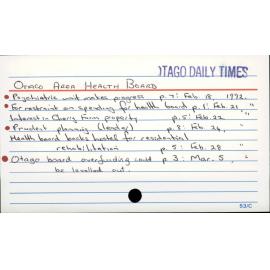 OTAGO DAILY TIMES
OTAGO AREA HEALTH BOARD
Psychiatric unit makes progress p.7: Feb. 18, 1992.
For restraint on spending for health board p.1: Feb. 21, "
Interest in Cherry Farm property p.5: Feb. 22 "
Prudent planning (leader) p.8: Feb. 24, "
Health board backs hostel for residential
rehabilitation p.5: Feb. 28 "
Otago board overfunding could p.3: Mar. 5, "
be levelled out.
53/C